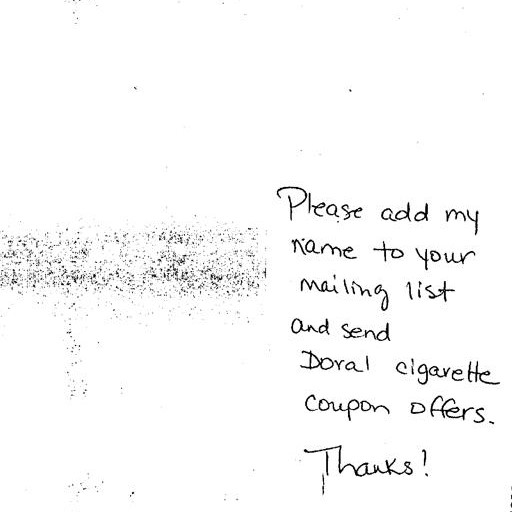 Please add my
name to your
mailing list
and send
Doral cigarette
coupon offers.
Thanks!